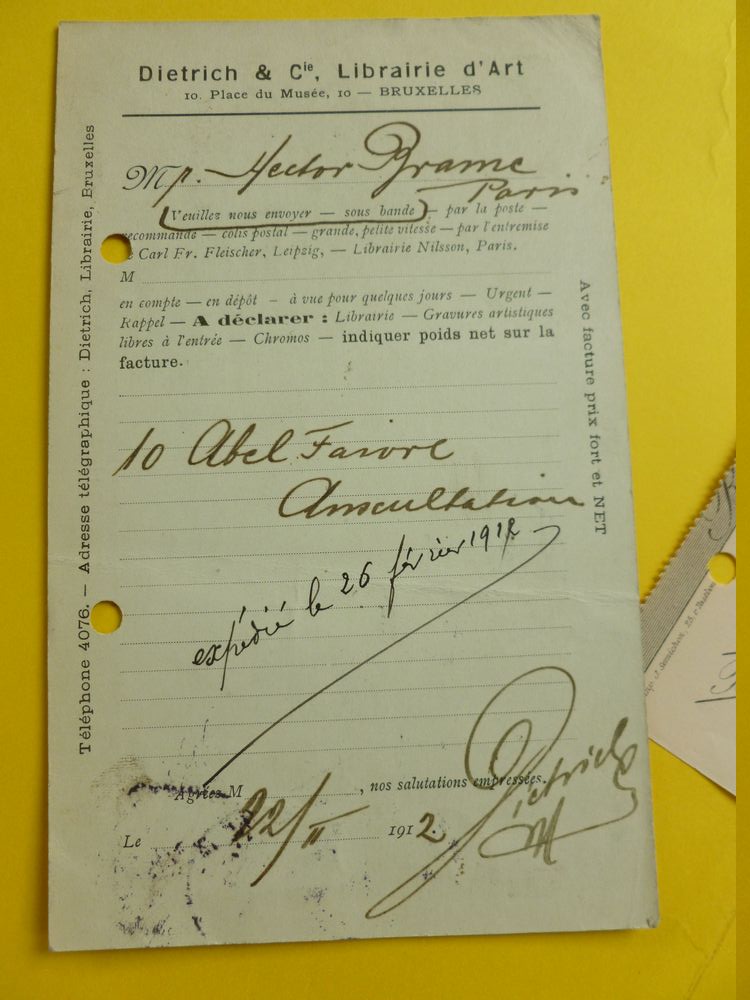 Dietrich & Cie, Librairie d'Art
10. Place du Musée, 10 — BRUXELLES
Mr. Hector Brame
Paris
Veuillez nous envoyer — sous bande — par la poste —
recommandé — colis postal — grande, petite vitesse — par l'entremise
de Carl Fr. Fleischer, Leipzig, — Librairie Nilsson, Paris.
M
en compte — en dépôt — à vue pour quelques jours — Urgent —
Rappel — A déclarer : Librairie — Gravures artistiques
libres à l'entrée — Chromos — indiquer poids net sur la
facture.
10 Abel Faivre
Auscultation
expédié le 26 février 1912
Agréez M , nos salutations empressées.
Dietrich
Le 22/II 1912
Téléphone 4076. — Adresse télégraphique : Dietrich, Librairie, Bruxelles
Avec facture prix fort et NET